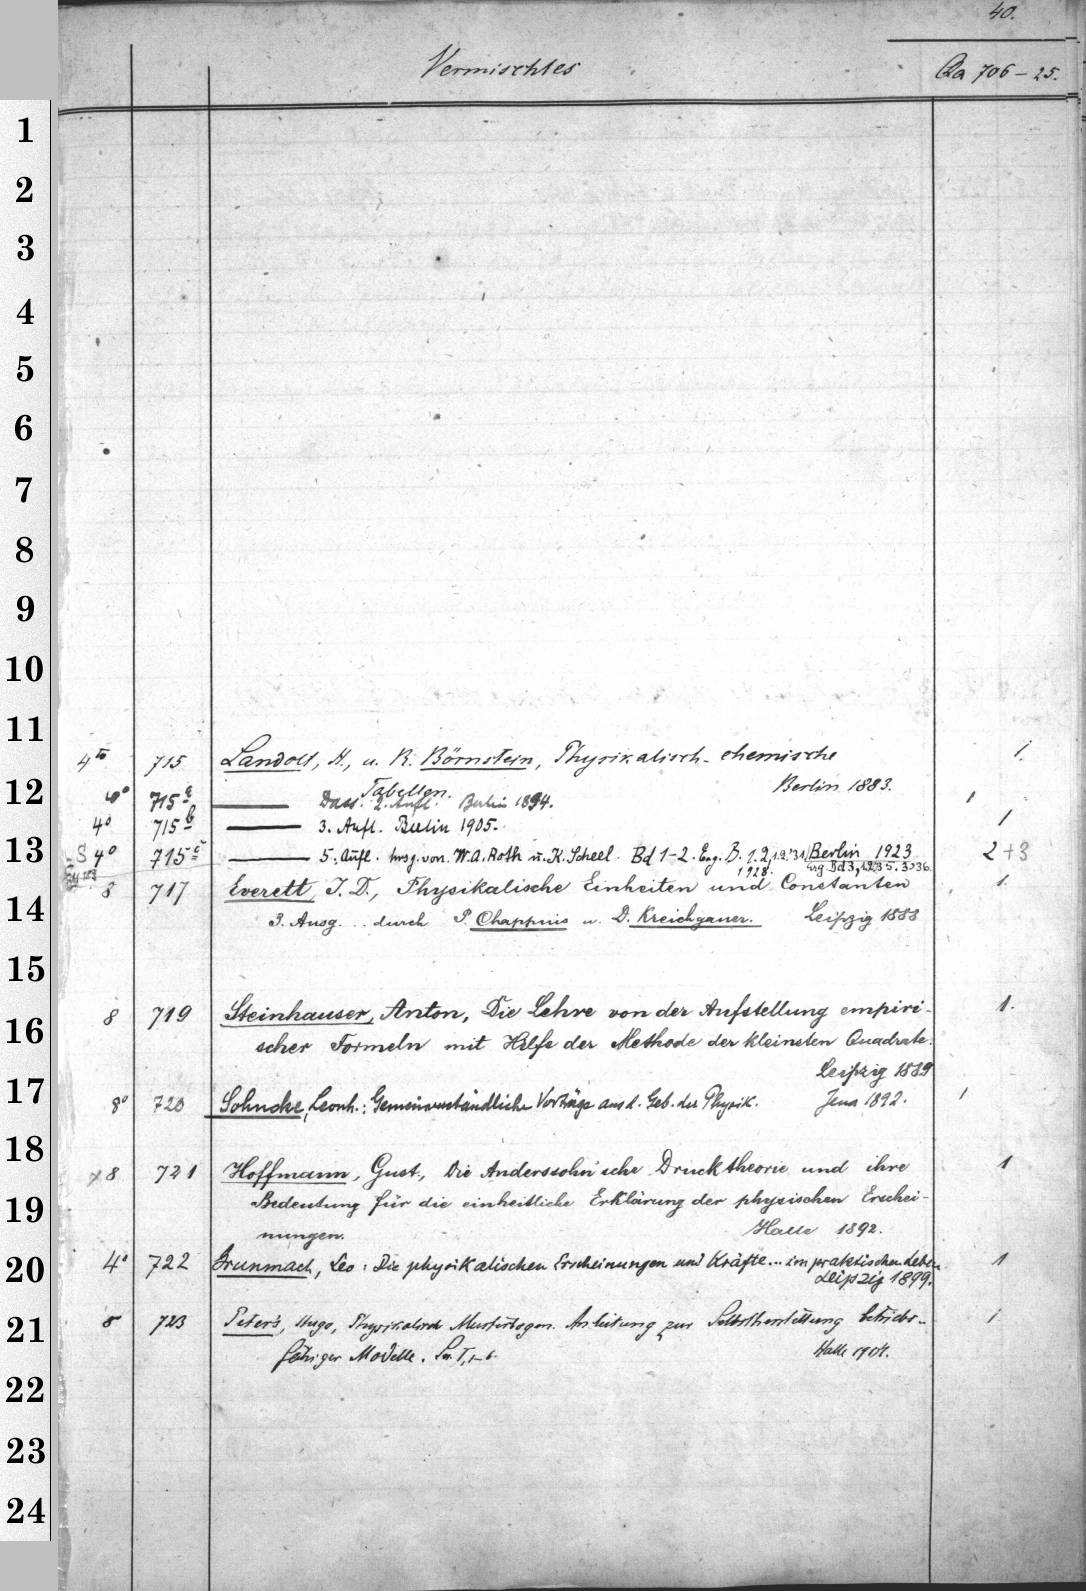 40.
Vermischtes
Qa 706-25.
1
2
3
4
5
6
7
8
9
10
11
4to 715 Landolt, H., u. R. Börnstein, Physikalisch-chemische 1.
Tabellen. Berlin 1883.
12
4° 715a —— Dass. 2. Aufl. Berlin 1894. 1
4° 715b —— 3. Aufl. Berlin 1905. 1
13
S 4° 715c —— 5. Aufl. hrsg. von. W. A. Roth u. K. Scheel. Bd 1-2. Erg. B. 1.2, Berlin 1923 2+3
8 717 Everett, J. D., Physikalische Einheiten und Constanten 1.
14
3. Ausg. .. durch P. Chappuis u. D. Kreichgauer. Leipzig 1888
15
8 719 Steinhauser, Anton, Die Lehre von der Aufstellung empiri- 1.
16
scher Formeln mit Hilfe der Methode der kleinsten Quadrate.
Leipzig 1889
17
8° 720 Sohncke, Leonh.: Gemeinverständliche Vorträge aus d. Geb. der Physik. Jena 1892. 1
18
8 721 Hoffmann, Gust., Die Anderssohn'sche Drucktheorie und ihre 1
19
Bedeutung für die einheitliche Erklärung der physischen Erschei-
nungen. Halle 1892.
20
4° 722 Grunmach, Leo: Die physikalischen Erscheinungen und Kräfte... im praktischen Leben 1
Leipzig 1899.
21
8 723 Peters, Hugo, Physikalische Modellbogen. Anleitung zur Selbstherstellung betriebs- 1
fähiger Modelle. Ser. I, 1-6. Halle 1904.
22
23
24